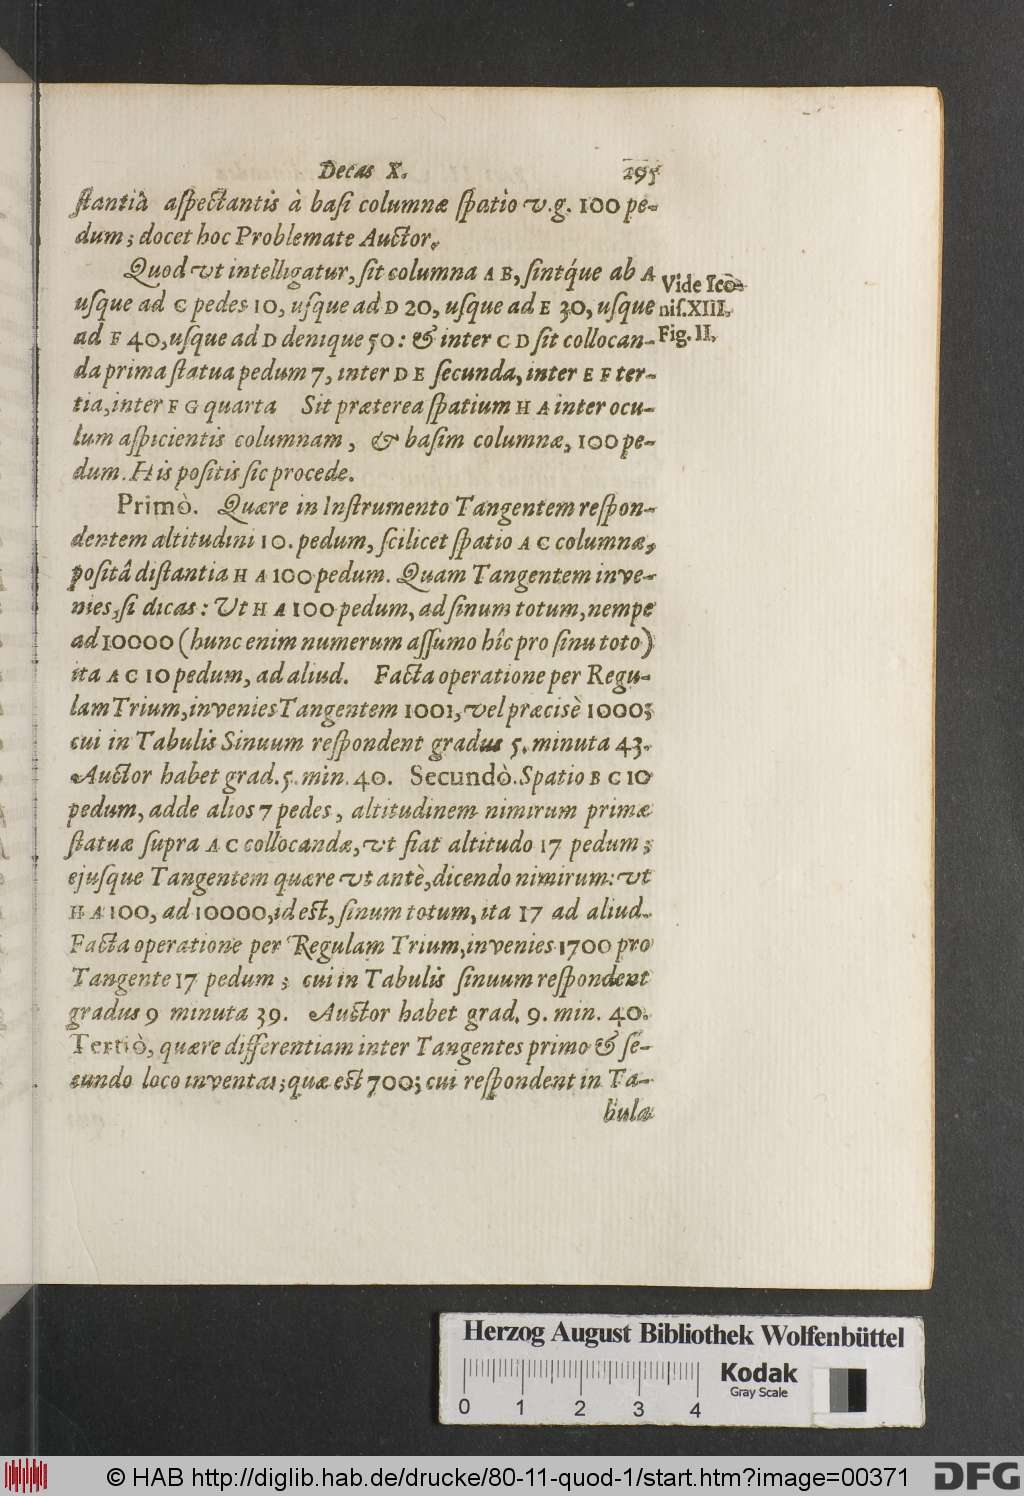 Decas X. 295
ſtantiâ aſpectantis à baſi columnæ ſpatio v.g. 100 pe-
dum; docet hoc Problemate Auctor.
Quod vt intelligatur, ſit columna A B, ſintq́ue ab A
uſque ad C pedes 10, uſque ad D 20, uſque ad E 30, uſque
ad F 40, uſque ad D denique 50: & inter C D ſit collocan-
da prima ſtatua pedum 7, inter D E ſecunda, inter E F ter-
tia, inter F G quarta Sit præterea ſpatium H A inter ocu-
lum aſpicientis columnam, & baſim columnæ, 100 pe-
dum. His poſitis ſic procede.
Vide Icō-
niſ. XIII.
Fig. II.
Primò. Quære in Inſtrumento Tangentem reſpon-
dentem altitudini 10. pedum, ſcilicet ſpatio A C columnæ,
poſitâ diſtantia H A 100 pedum. Quam Tangentem inve-
nies, ſi dicas: Ut H A 100 pedum, ad ſinum totum, nempe
ad 10000 (hunc enim numerum aſſumo hîc pro ſinu toto)
ita A C 10 pedum, ad aliud. Facta operatione per Regu-
lam Trium, invenies Tangentem 1001, vel præcisè 1000;
cui in Tabulis Sinuum reſpondent gradus 5. minuta 43.
Auctor habet grad. 5. min. 40. Secundò. Spatio B C 10
pedum, adde alios 7 pedes, altitudinem nimirum primæ
ſtatuæ ſupra A C collocandæ, vt fiat altitudo 17 pedum;
ejuſque Tangentem quære vt antè, dicendo nimirum: vt
H A 100, ad 10000, id eſt, ſinum totum, ita 17 ad aliud.
Facta operatione per Regulam Trium, invenies 1700 pro
Tangente 17 pedum; cui in Tabulis ſinuum reſpondent
gradus 9 minuta 39. Auctor habet grad. 9. min. 40.
Tertiò, quære differentiam inter Tangentes primo & ſe-
cundo loco inventas; quæ eſt 700; cui reſpondent in Ta-
bula
Herzog August Bibliothek Wolfenbüttel
0 1 2 3 4
Kodak
Gray Scale
© HAB http://diglib.hab.de/drucke/80-11-quod-1/start.htm?image=00371
DFG